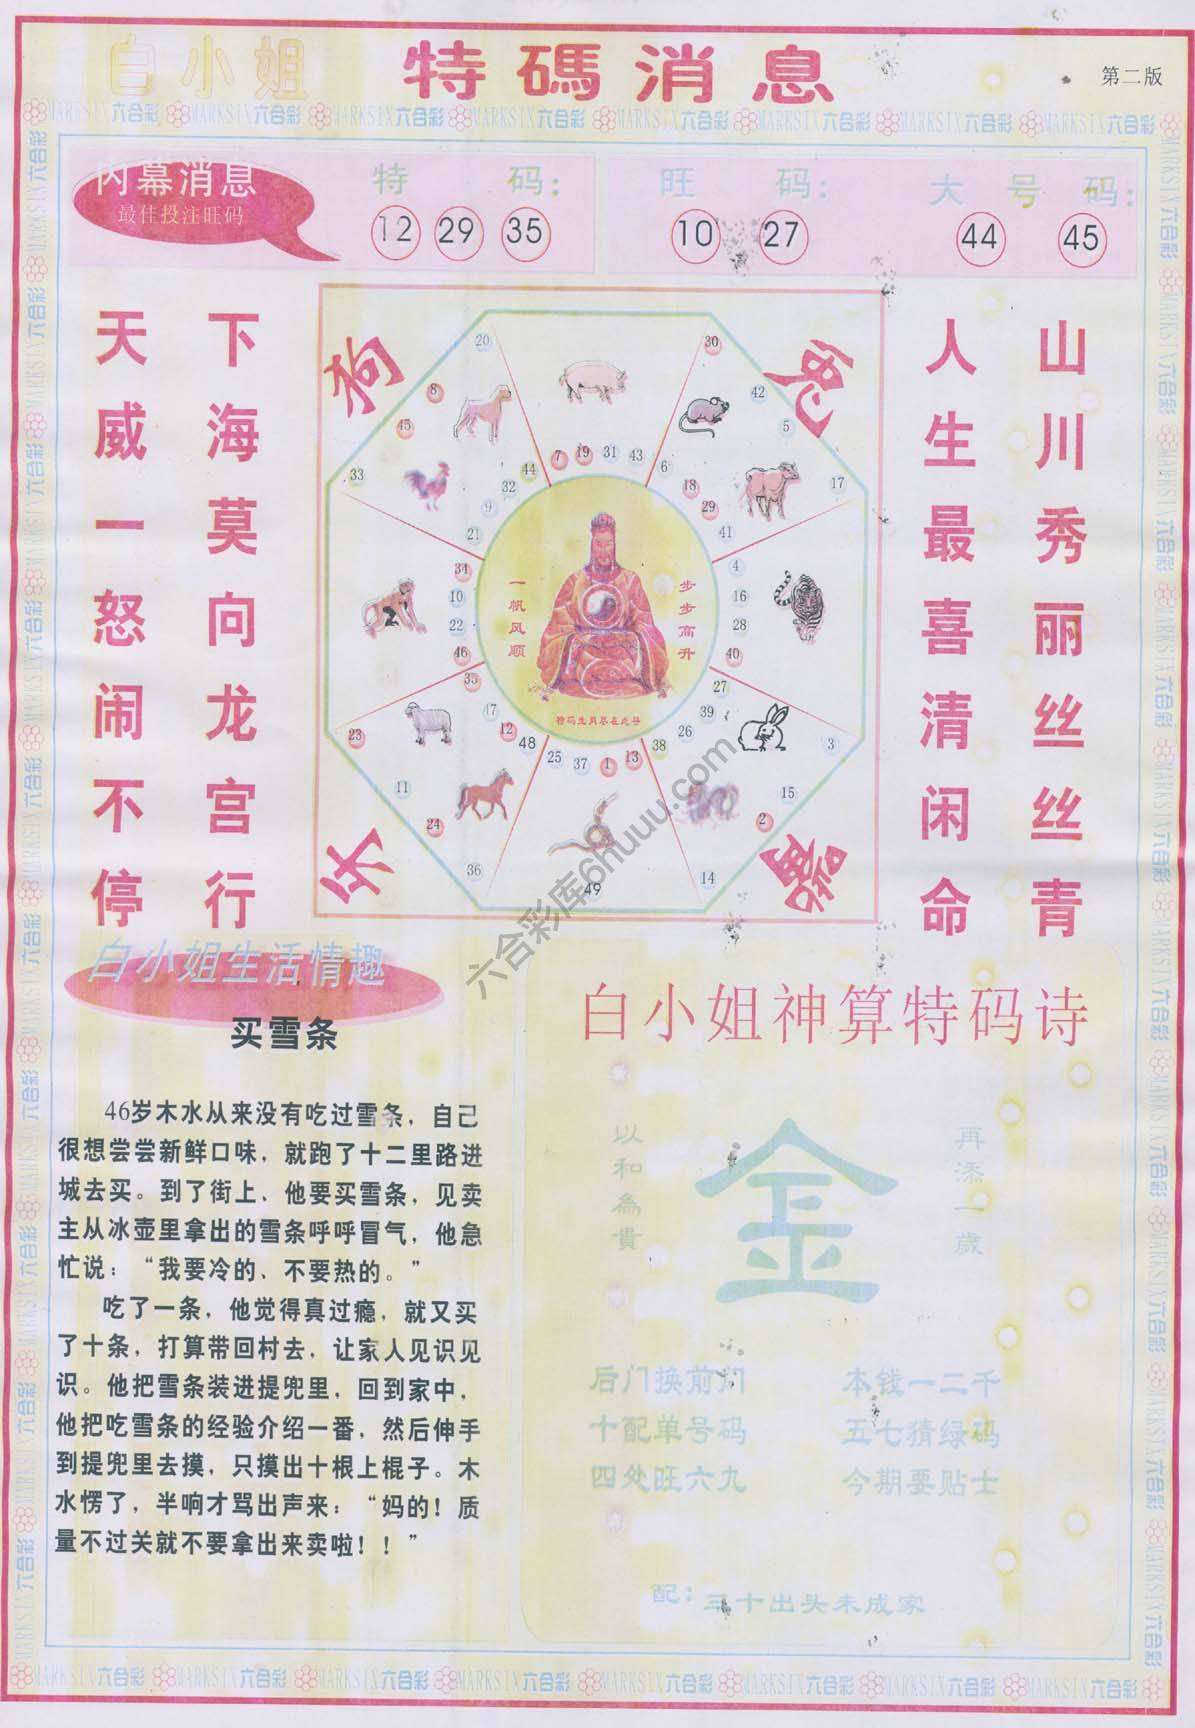 白小姐 特碼消息
第二版
MARKSIX六合彩 MARKSIX六合彩 MARKSIX六合彩 MARKSIX六合彩 MARKSIX六合彩 MARKSIX六合彩 MARKSIX六合彩 MARKSIX六合彩
内幕消息
最佳投注旺码
特码：
12 29 35
旺码：
10 27
大号码：
44 45
天威一怒闹不停
下海莫向龙宫行
狗
兔
20
30
8
42
45
5
33
17
44 7 19 31 43 6
32
18
9
29
21
41
34
4
10
16
22
28
46
40
35
27
17
39
12
26
48 25 37 1 13 38
23
3
11
15
24
2
36
14
49
一帆风顺
步步高升
特码生肖尽在此寻
人生最喜清闲命
山川秀丽丝丝青
六合彩库6huuu.com
白小姐生活情趣
买雪条
46岁木水从来没有吃过雪条，自己
很想尝尝新鲜口味，就跑了十二里路进
城去买。到了街上、他要买雪条，见卖
主从冰壶里拿出的雪条呼呼冒气，他急
忙说：“我要冷的、不要热的。”
吃了一条，他觉得真过瘾，就又买
了十条，打算带回村去，让家人见识见
识。他把雪条装进提兜里，回到家中，
他把吃雪条的经验介绍一番，然后伸手
到提兜里去摸，只摸出十根上棍子。木
水愣了，半响才骂出声来：“妈的！质
量不过关就不要拿出来卖啦！！”
白小姐神算特码诗
以和為貴
金
再添一歲
后门换前门 本钱一二千
十配单号码 五七猜绿码
四处旺六九 今期要贴士
配：三十出头未成家
MARKSIX六合彩 MARKSIX六合彩 MARKSIX六合彩 MARKSIX六合彩 MARKSIX六合彩 MARKSIX六合彩 MARKSIX六合彩 MARKSIX六合彩